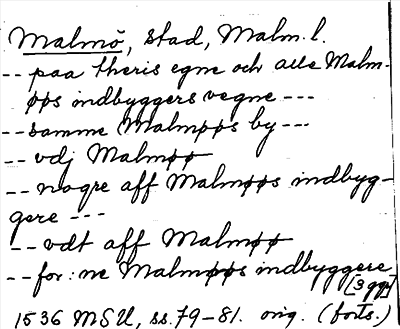 Malmö, stad, Malm. l.
-- paa theris egne och alle Malm-
øøs indbyggers vegne ---
-- samme Malmøøs by ---
-- vdj Malmøø
-- nogre aff Malmøøs indbyg-
gere ---
-- vdt aff Malmøø
-- for:ne Malmøøs indbyggere
[3 ggr]
1536 MSU, ss. 79-81. orig. (forts.)